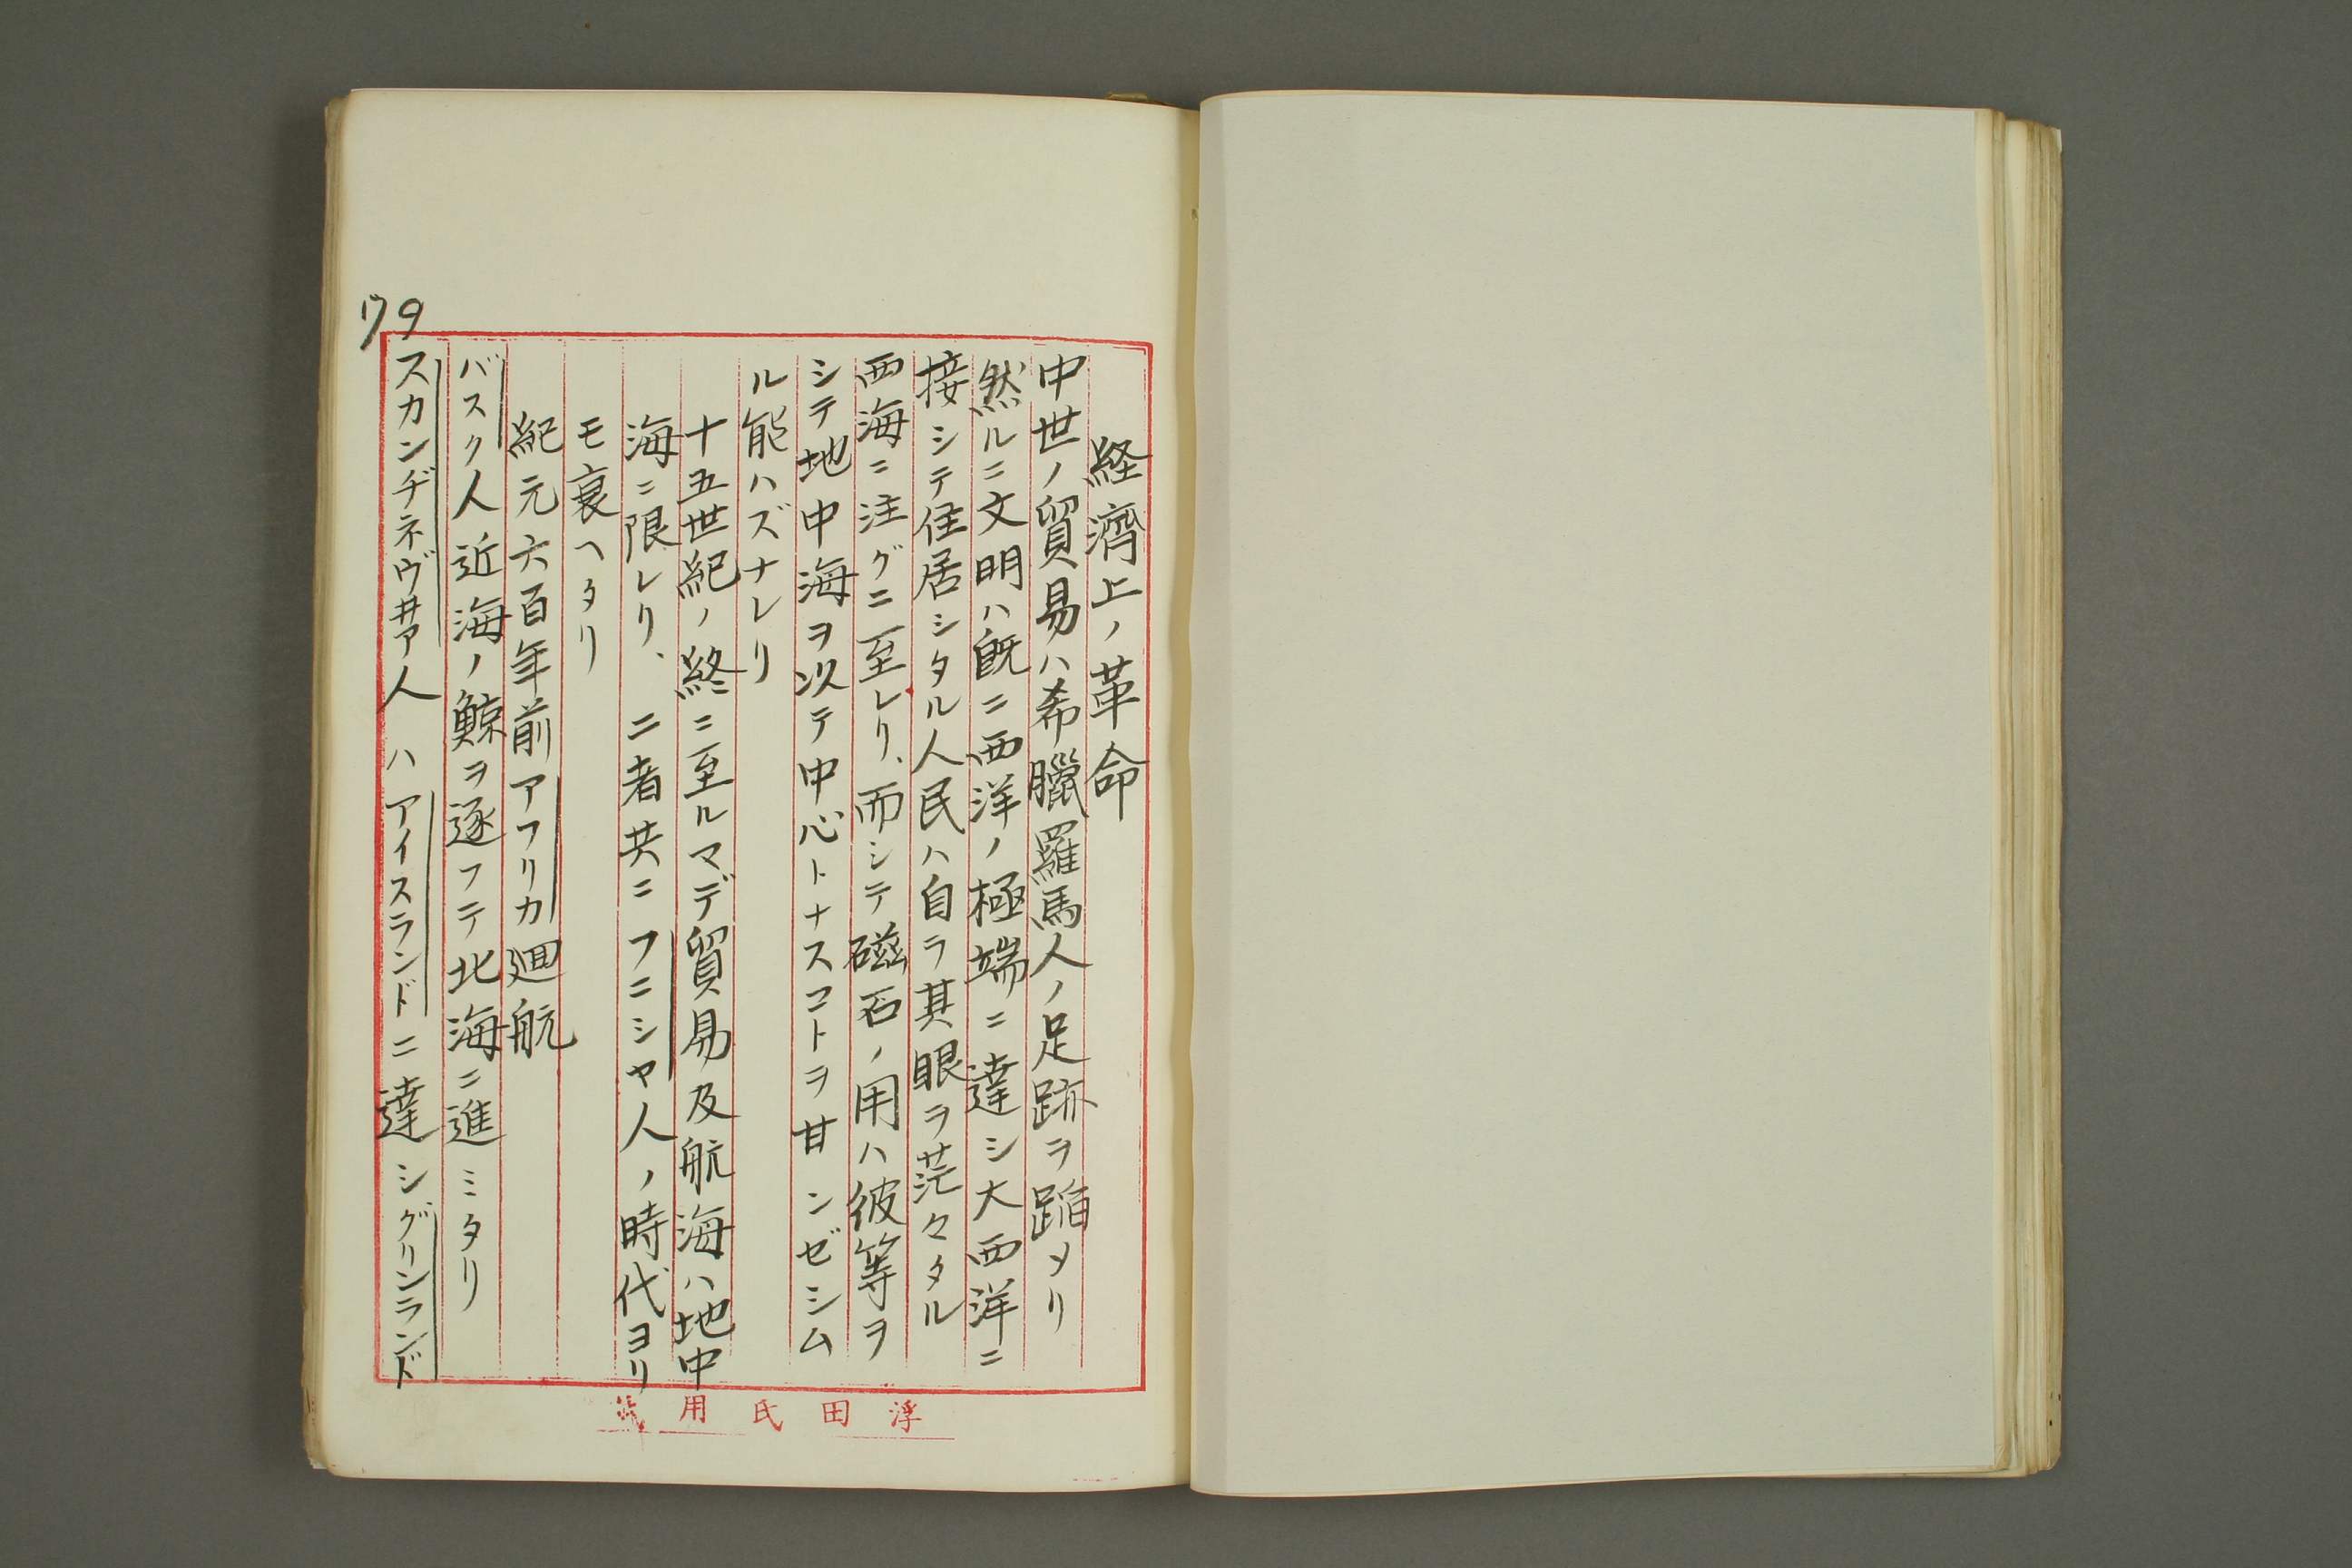 経濟上ノ革命
中世ノ貿易ハ希臘羅馬人ノ足跡ヲ蹈メリ
然ルニ文明ハ既ニ西洋ノ極端ニ達シ大西洋ニ
接シテ住居シタル人民ハ自ラ其眼ヲ茫々タル
西海ニ注グニ至レリ、而シテ磁石ノ用ハ彼等ヲ
シテ地中海ヲ以テ中心トナスコトヲ甘ンゼシム
ル能ハズナレリ
十五世紀ノ終ニ至ルマデ貿易及航海ハ地中
海ニ限レリ、二者共ニフニシヤ人ノ時代ヨリ
モ衰ヘタリ
紀元六百年前アフリカ廻航
バスク人近海ノ鯨ヲ逐フテ北海ニ進ミタリ
スカンヂネヴ井ア人ハアイスランドニ達シグリンランド
79
浮田氏用